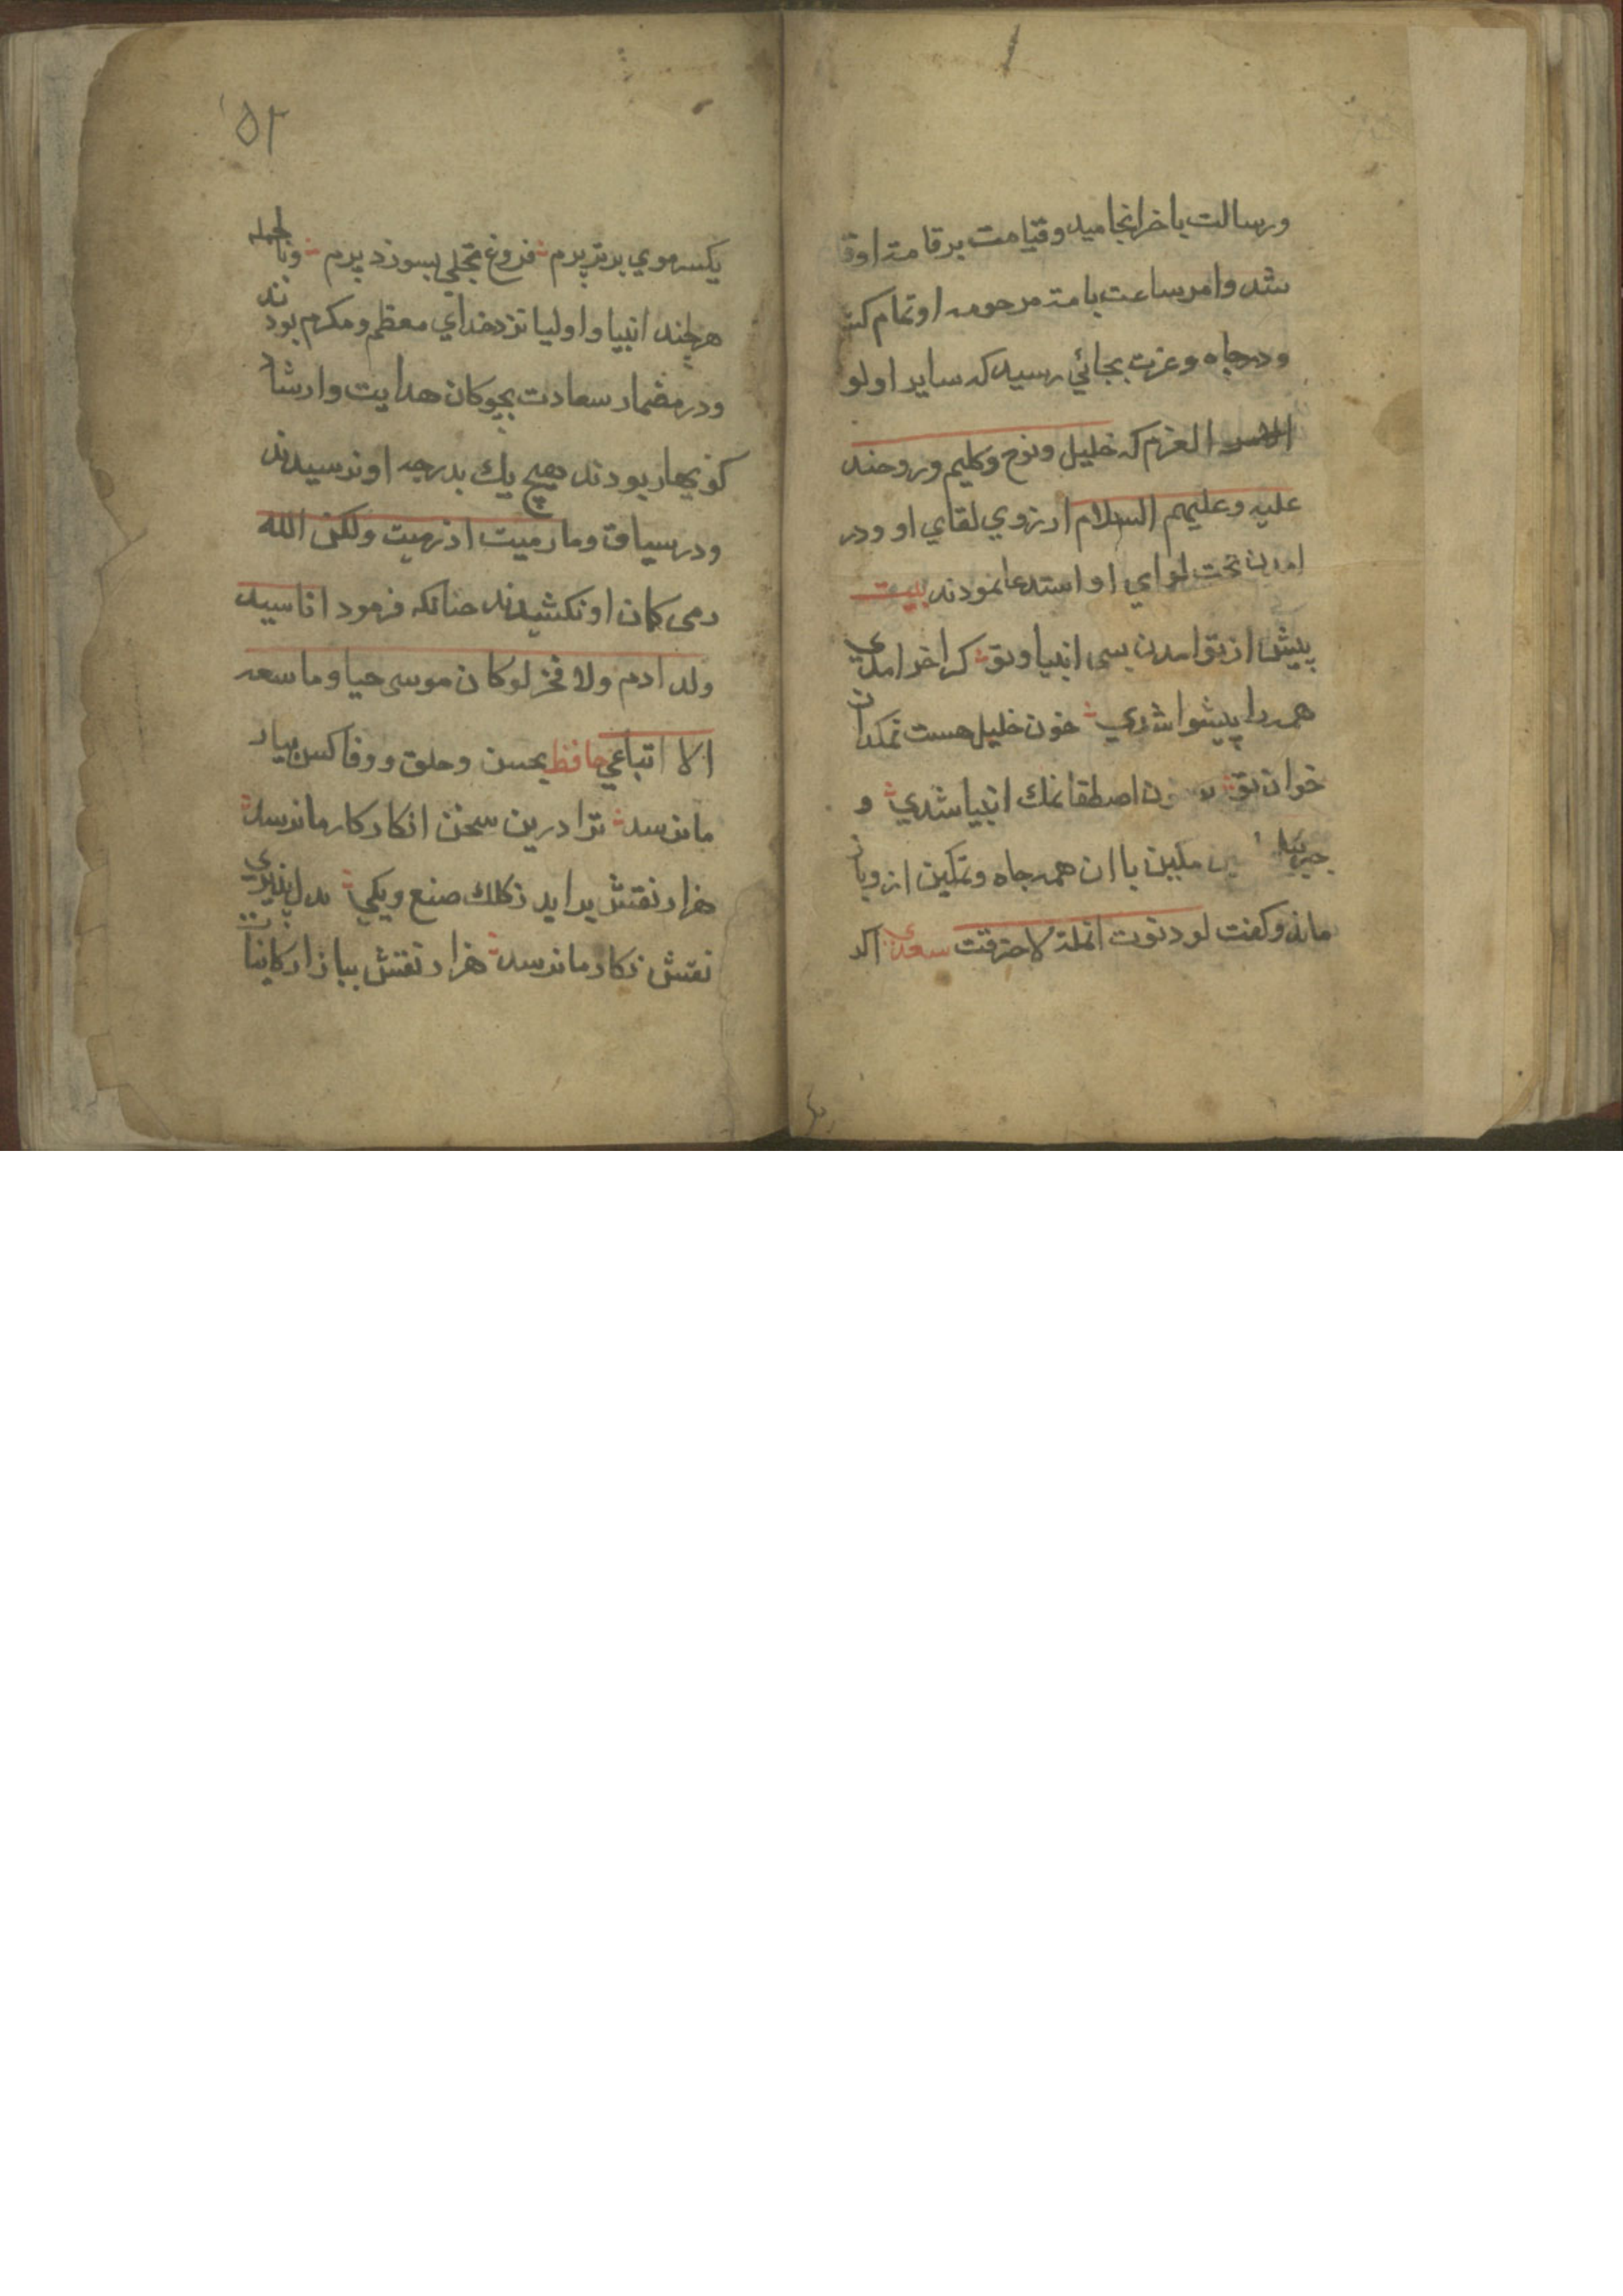 ورسالت باخر انجاميد وقيامت بر قامت او
شد وامر ساعت بامت مرحومه او تمام كشت
ودر جاه وعزت بجائي رسيد كه ساير اولو
العزم كه خليل ونوح وكليم وروحند
عليه وعليهم السلام ارزوي لقاي او ودر
امدن تحت لواي او استدعا نمودند بيت
پيش از تو امدن بسى انبيا وتو كر اخر امدي
همه را پيشوا شدي خون خليل هست نمكدان
خوان تو اصطفا نمك انبيا شدي و
جبرئيل مكين با ان همه جاه وتمكين از وباز
ماند وكفت لو دنوت انملة لاحترقت سعدي اكر
۱۵۲
يكسر موي برتر پرم فروغ تجلي بسوزد پرم وباجمله
هر چند انبيا واوليا نزد خداي معظم ومكرم بودند
ودر مضمار سعادت بچوكان هدايت وارشاد
كوي هار بودند هيچ يك بدرجه او نرسيدند
ودر سياق وما رميت اذ رميت ولكن الله
رمى كمان او نكشيدند حنانكه فرمود انا سيد
ولد ادم ولا فخر لو كان موسى حيا وما سعه
الا اتباعي حافظ بحسن وخلق ووفا كس بيار
ما نرسد ترا درين سخن انكار كار ما نرسد
هزار نقش برايد ز كلك صنع ويكي بدل پذيري
نقش نكار ما نرسد هزار نقش ببازار كاينات